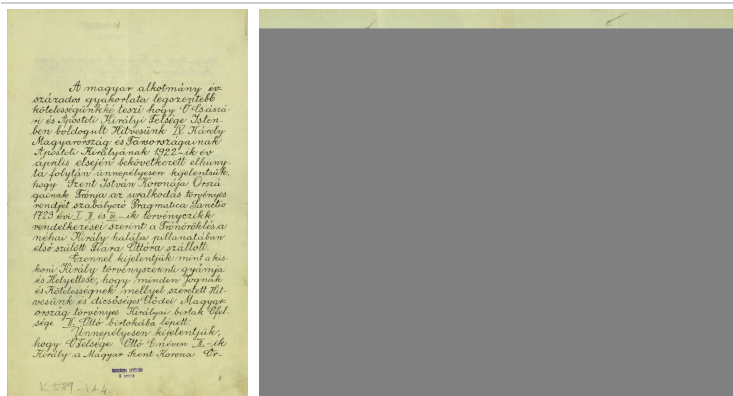 A magyar alkotmány év-
százados gyakorlata legszentebb
kötelességünkké teszi hogy Ő Császá-
ri és Apostoli Királyi Felsége Isten-
ben boldogult Hitvesünk IV. Károly
Magyarország és Társországainak
Apostoli Királyának 1922-ik év
április elsején bekövetkezett elhuny-
ta folytán ünnepélyesen kijelentsük,
hogy Szent István Koronája Orszá-
gainak Trónja az uralkodás törvényes
rendjét szabályozó Pragmatica Sanctio
1723 évi I. II. és III.-ik törvényczikk
rendelkezései szerint a Trónöröklés a
néhai Király halála pillanatában
első szülött Fiára Ottóra szállott.
Ezennel kijelentjük mint a kis-
korú Király törvényszerinti gyámja
és Helyettese, hogy minden Jognak
és Kötelességnek mellyet szeretett Hit-
vesünk és dicsőséges Elődei Magyar-
ország törvényes Királyai bírtak Őfel-
sége II. Ottó birtokába lépett.
Ünnepélyesen kijelentjük,
hogy Ő Felsége Ottó E néven II.-ik
Király a Magyar Szent Korona Or-
K 589-I A 4.